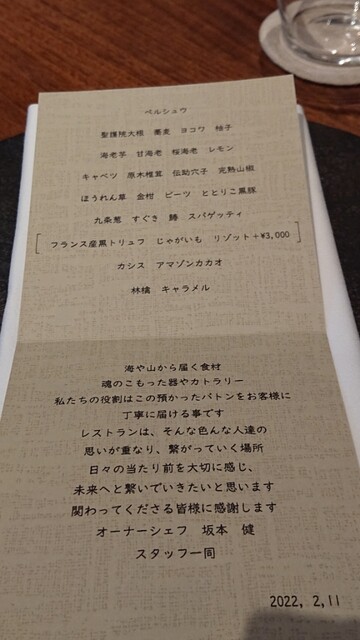 ペルシュウ
聖護院大根　蕎麦　ヨコワ　柚子
海老芋　甘海老　桜海老　レモン
キャベツ　原木椎茸　伝助穴子　完熟山椒
ほうれん草　金柑　ビーツ　ととりこ黒豚
九条葱　すぐき　鰆　スパゲッティ
フランス産黒トリュフ　じゃがいも　リゾット＋¥3,000
カシス　アマゾンカカオ
林檎　キャラメル
海や山から届く食材
魂のこもった器やカトラリー
私たちの役割はこの預かったバトンをお客様に
丁寧に届ける事です
レストランは、そんな色んな人達の
思いが重なり、繋がっていく場所
日々の当たり前を大切に感じ、
未来へと繋いでいきたいと思います
関わってくださる皆様に感謝します
オーナーシェフ　坂本　健
スタッフ一同
2022, 2,11